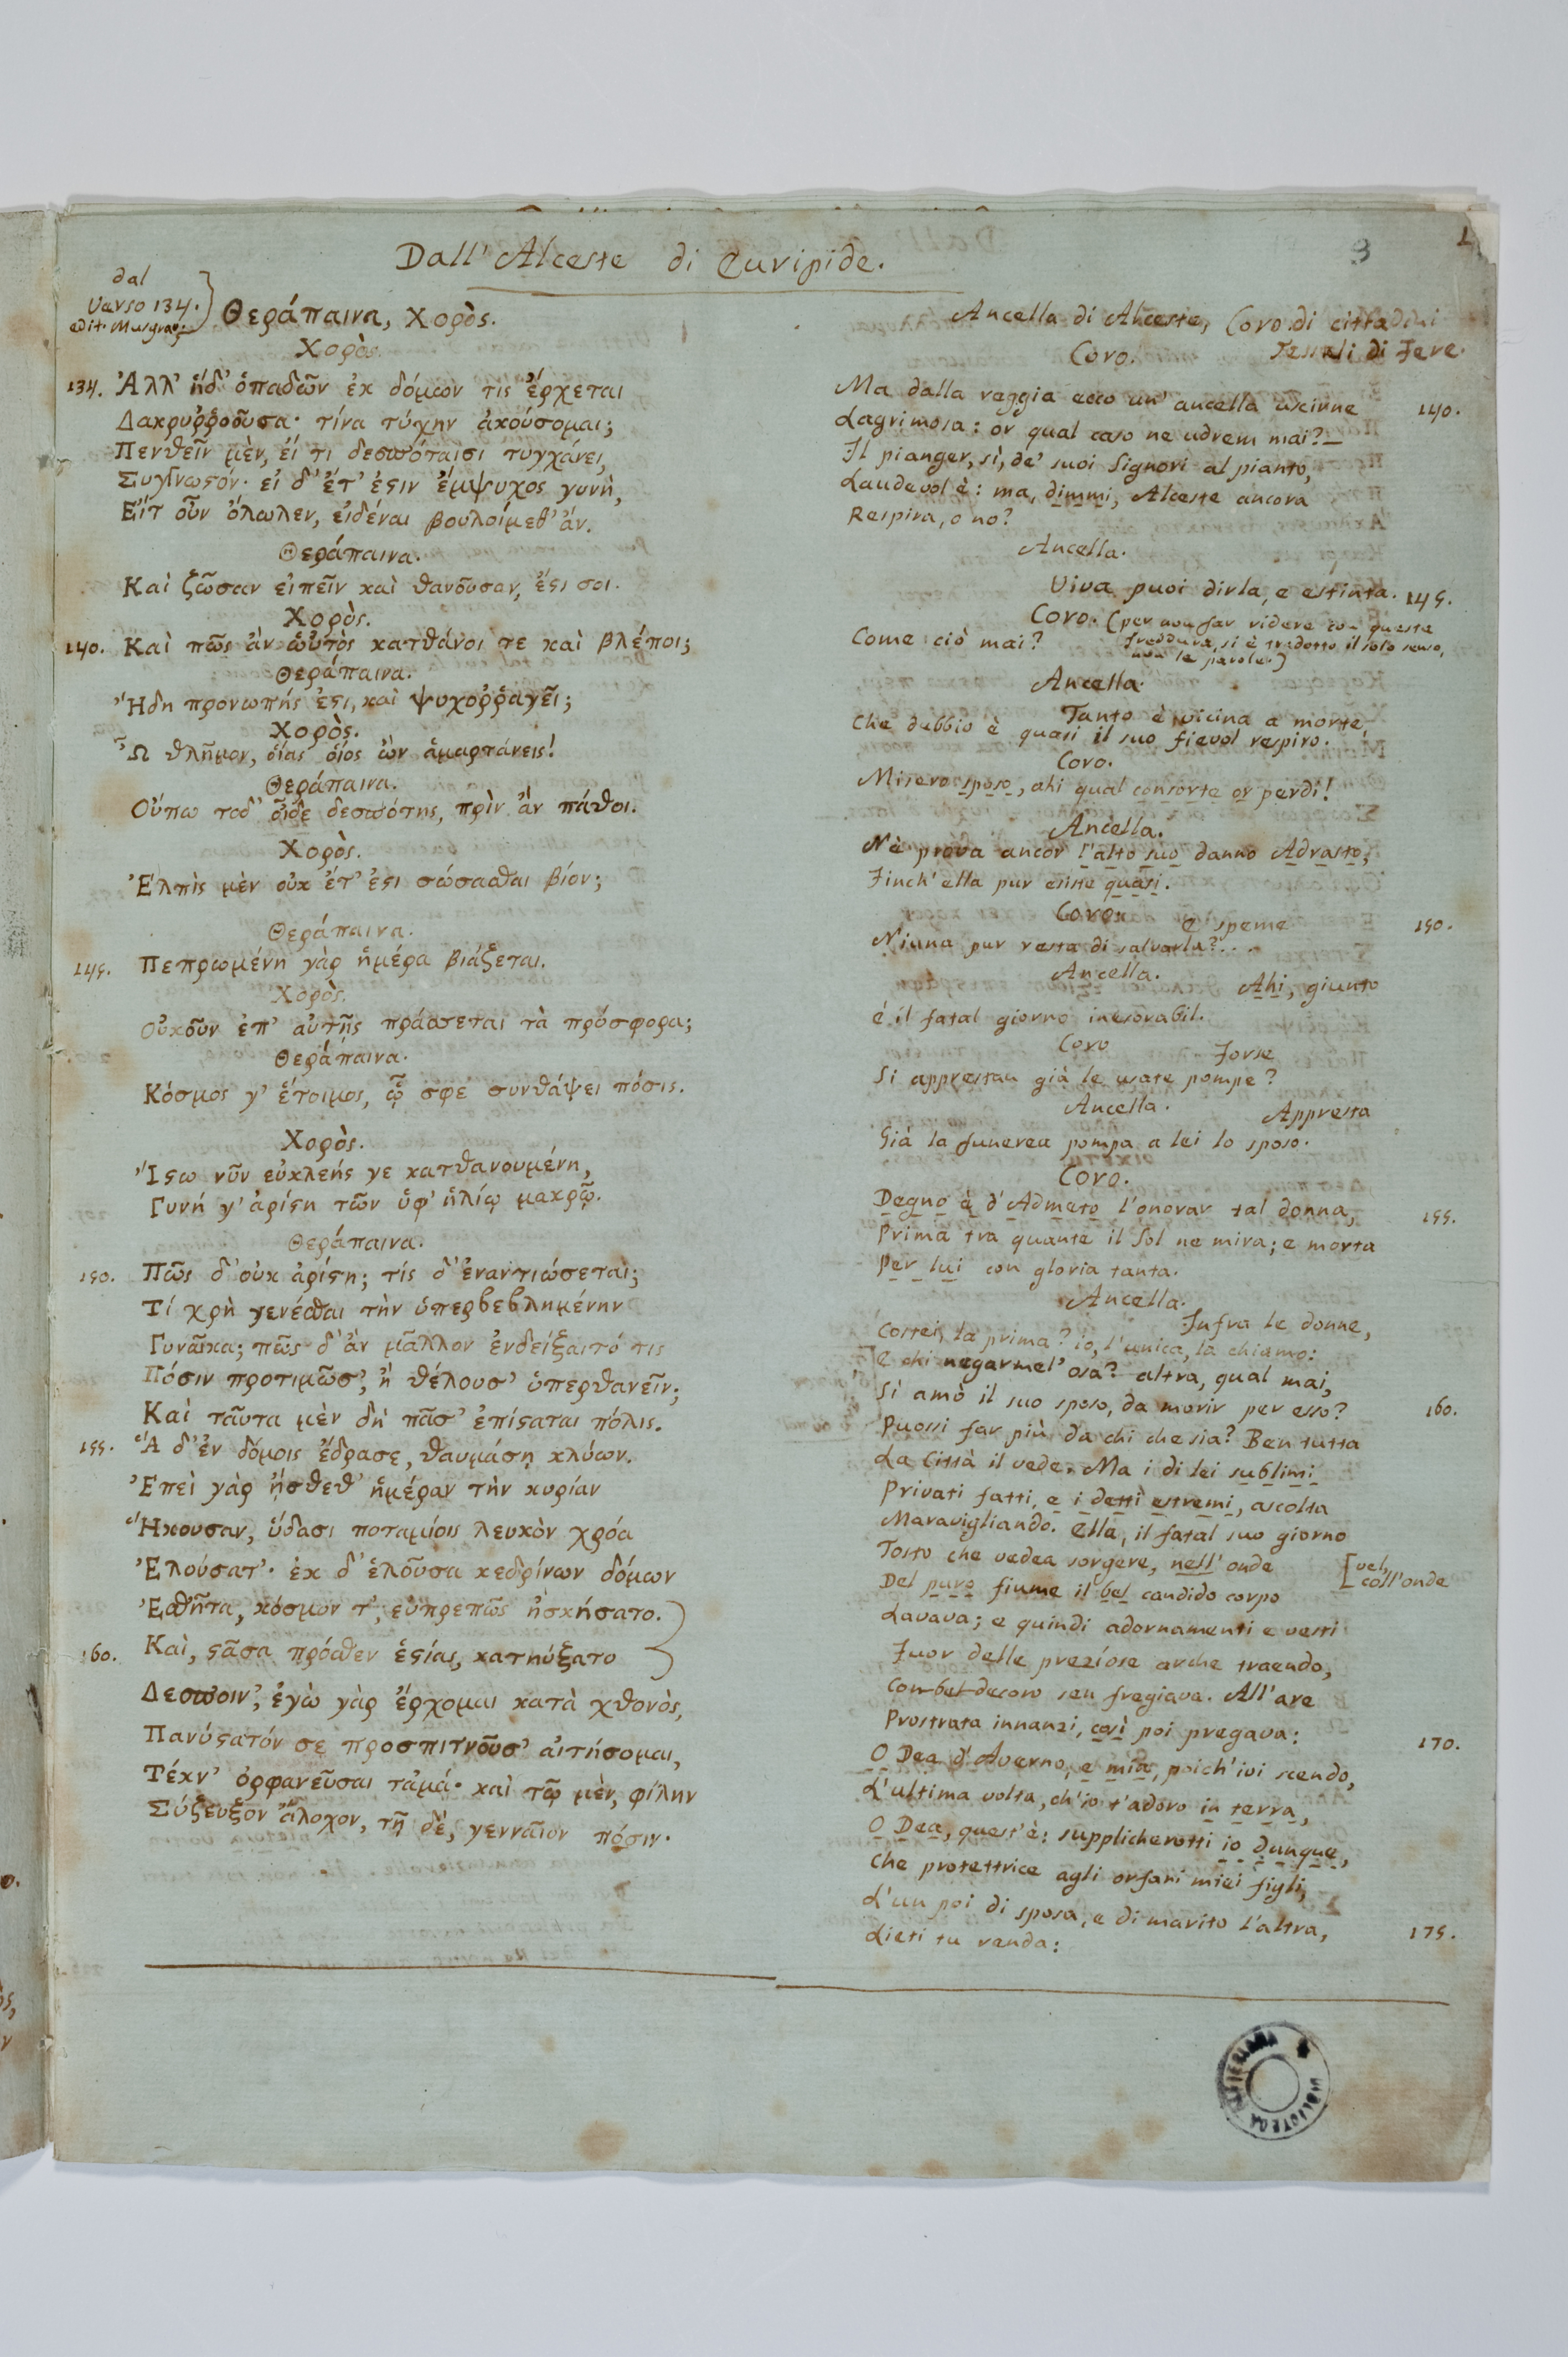 3
1
Dall' Alceste di Euripide.
dal
Verso 134.
edit. Musgrav.
Θεράπαινα, Χορὸς.
Χορὸς.
134. Ἀλλ' ἥδ' ὀπαδῶν ἐκ δόμων τις ἔρχεται
Δακρυῤῥοοῦσα· τίνα τύχην ἀκούσομαι;
Πενθεῖν μὲν, εἴ τι δεσπόταισι τυγχάνει,
Συγγνωϛόν· εἰ δ' ἔτ' ἐϛιν ἔμψυχος γυνὴ,
Εἴτ οὖν ὄλωλεν, εἰδέναι βουλοίμεθ' ἄν.
Θεράπαινα.
Καὶ ζῶσαν εἰπεῖν καὶ θανοῦσαν, ἔϛι σοι.
Χορὸς.
140. Καὶ πῶς ἂν ὡὑτὸς κατθάνοι τε καὶ βλέποι;
Θεράπαινα.
Ἤδη προνωπής ἐϛι, καὶ ψυχοῤῥαγεῖ;
Χορὸς.
Ὦ θλῆμον, οἵας οἷος ὢν ἁμαρτάνεις!
Θεράπαινα.
Οὔπω τοδ' οἶδε δεσπότης, πρὶν ἂν πάθοι.
Χορὸς.
Ἐλπὶς μὲν οὐκ ἔτ' ἐϛι σώσασθαι βίον;
Θεράπαινα.
145. Πεπρωμένη γὰρ ἡμέρα βιάζεται.
Χορὸς.
Οὐκοῦν ἐπ' αὐτῆς πράσσεται τὰ πρόσφορα;
Θεράπαινα.
Κόσμος γ' ἕτοιμος, ᾧ σφε συνθάψει πόσις.
Χορὸς.
Ἴϛω νῦν εὐκλεής γε κατθανουμένη,
Γυνή γ' ἀρίϛη τῶν ὑφ' ἡλίῳ μακρῷ.
Θεράπαινα.
150. Πῶς δ' οὐκ ἀρίϛη; τίς δ' ἐναντιώσεται;
Τί χρὴ γενέσθαι τὴν ὑπερβεβλημένην
Γυναῖκα; πῶς δ' ἂν μᾶλλον ἐνδείξαιτό τις
Πόσιν προτιμῶσ', ἢ θέλουσ' ὑπερθανεῖν;
Καὶ ταῦτα μὲν δὴ πᾶσ' ἐπίϛαται πόλις.
155. Ἃ δ' ἐν δόμοις ἔδρασε, θαυμάσῃ κλύων.
Ἐπεὶ γὰρ ᾔσθεθ' ἡμέραν τὴν κυρίαν
Ἥκουσαν, ὕδασι ποταμίοις λευκὸν χρόα
Ἐλούσατ'· ἐκ δ' ἑλοῦσα κεδρίνων δόμων
Ἐσθῆτα, κόσμον τ', εὐπρεπῶς ἠσκήσατο.
160. Καὶ, ϛᾶσα πρόσθεν ἑϛίας, κατηύξατο
Δεσποιν', ἐγὼ γὰρ ἔρχομαι κατὰ χθονὸς,
Πανύϛατόν σε προσπιτνοῦσ' αἰτήσομαι,
Τέκν' ὀρφανεῦσαι τἀμά· καὶ τῷ μὲν, φίλην
Σύζευξον ἄλοχον, τῇ δὲ, γενναῖον πόσιν.
Ancella di Alceste, Coro di cittadini
Tessali di Fere.
Coro.
Ma dalla reggia ecco un' ancella uscirne 140.
Lagrimosa: or qual caso ne udrem mai?—
Il pianger, sì, de' suoi Signori al pianto,
Laudevol è: ma, dimmi, Alceste ancora
Respira, o no?
Ancella.
Viva puoi dirla, e estinta. 145.
Coro. (per non far ridere con queste
freddure, si è tradotto il solo senso,
non le parole.)
Come ciò mai?
Ancella.
Tanto è vicina a morte,
Che dubbio è quasi il suo fievol respiro.
Coro.
Misero sposo, ahi qual consorte or perdi!
Ancella.
Nè prova ancor l'alto suo danno Adrasto,
Finch' ella pur esiste quasi.
Coro.
E speme 150.
Niuna pur resta di salvarla?...
Ancella.
Ahi, giunto
è il fatal giorno inesorabil.
Coro
Forse
Si apprestan già le usate pompe?
Ancella.
Appresta
Già la funerea pompa a lei lo sposo.
Coro.
Degno è d'Admeto l'onorar tal donna, 155.
Prima tra quante il Sol ne mira; e morta
Per lui con gloria tanta.
Ancella.
Infra le donne,
Costei, la prima? io, l'unica, la chiamo:
E chi negarmel' osa? altra, qual mai,
Sì amò il suo sposo, da morir per esso? 160.
Puossi far più da chi che sia? Ben tutta
La Città il vede. Ma i di lei sublimi
Privati fatti, e i detti estremi, ascolta
Maravigliando. Ella, il fatal suo giorno
Tosto che vedea sorgere, nell' onde
[vel,
coll'onde
Del puro fiume il bel candido corpo
Lavava; e quindi adornamenti e vesti
Fuor delle preziose arche traendo,
Con bel decoro sen fregiava. All'are
Prostrata innanzi, così poi pregava: 170.
O Dea d'Averno, e mia, poich' ivi scendo,
L'ultima volta, ch'io t'adoro in terra,
O Dea, quest'è: supplicherotti io dunque,
Che protettrice agli orfani miei figli,
L'un poi di sposa, e di marito l'altra, 175.
Lieti tu renda:
BIBLIOTECA